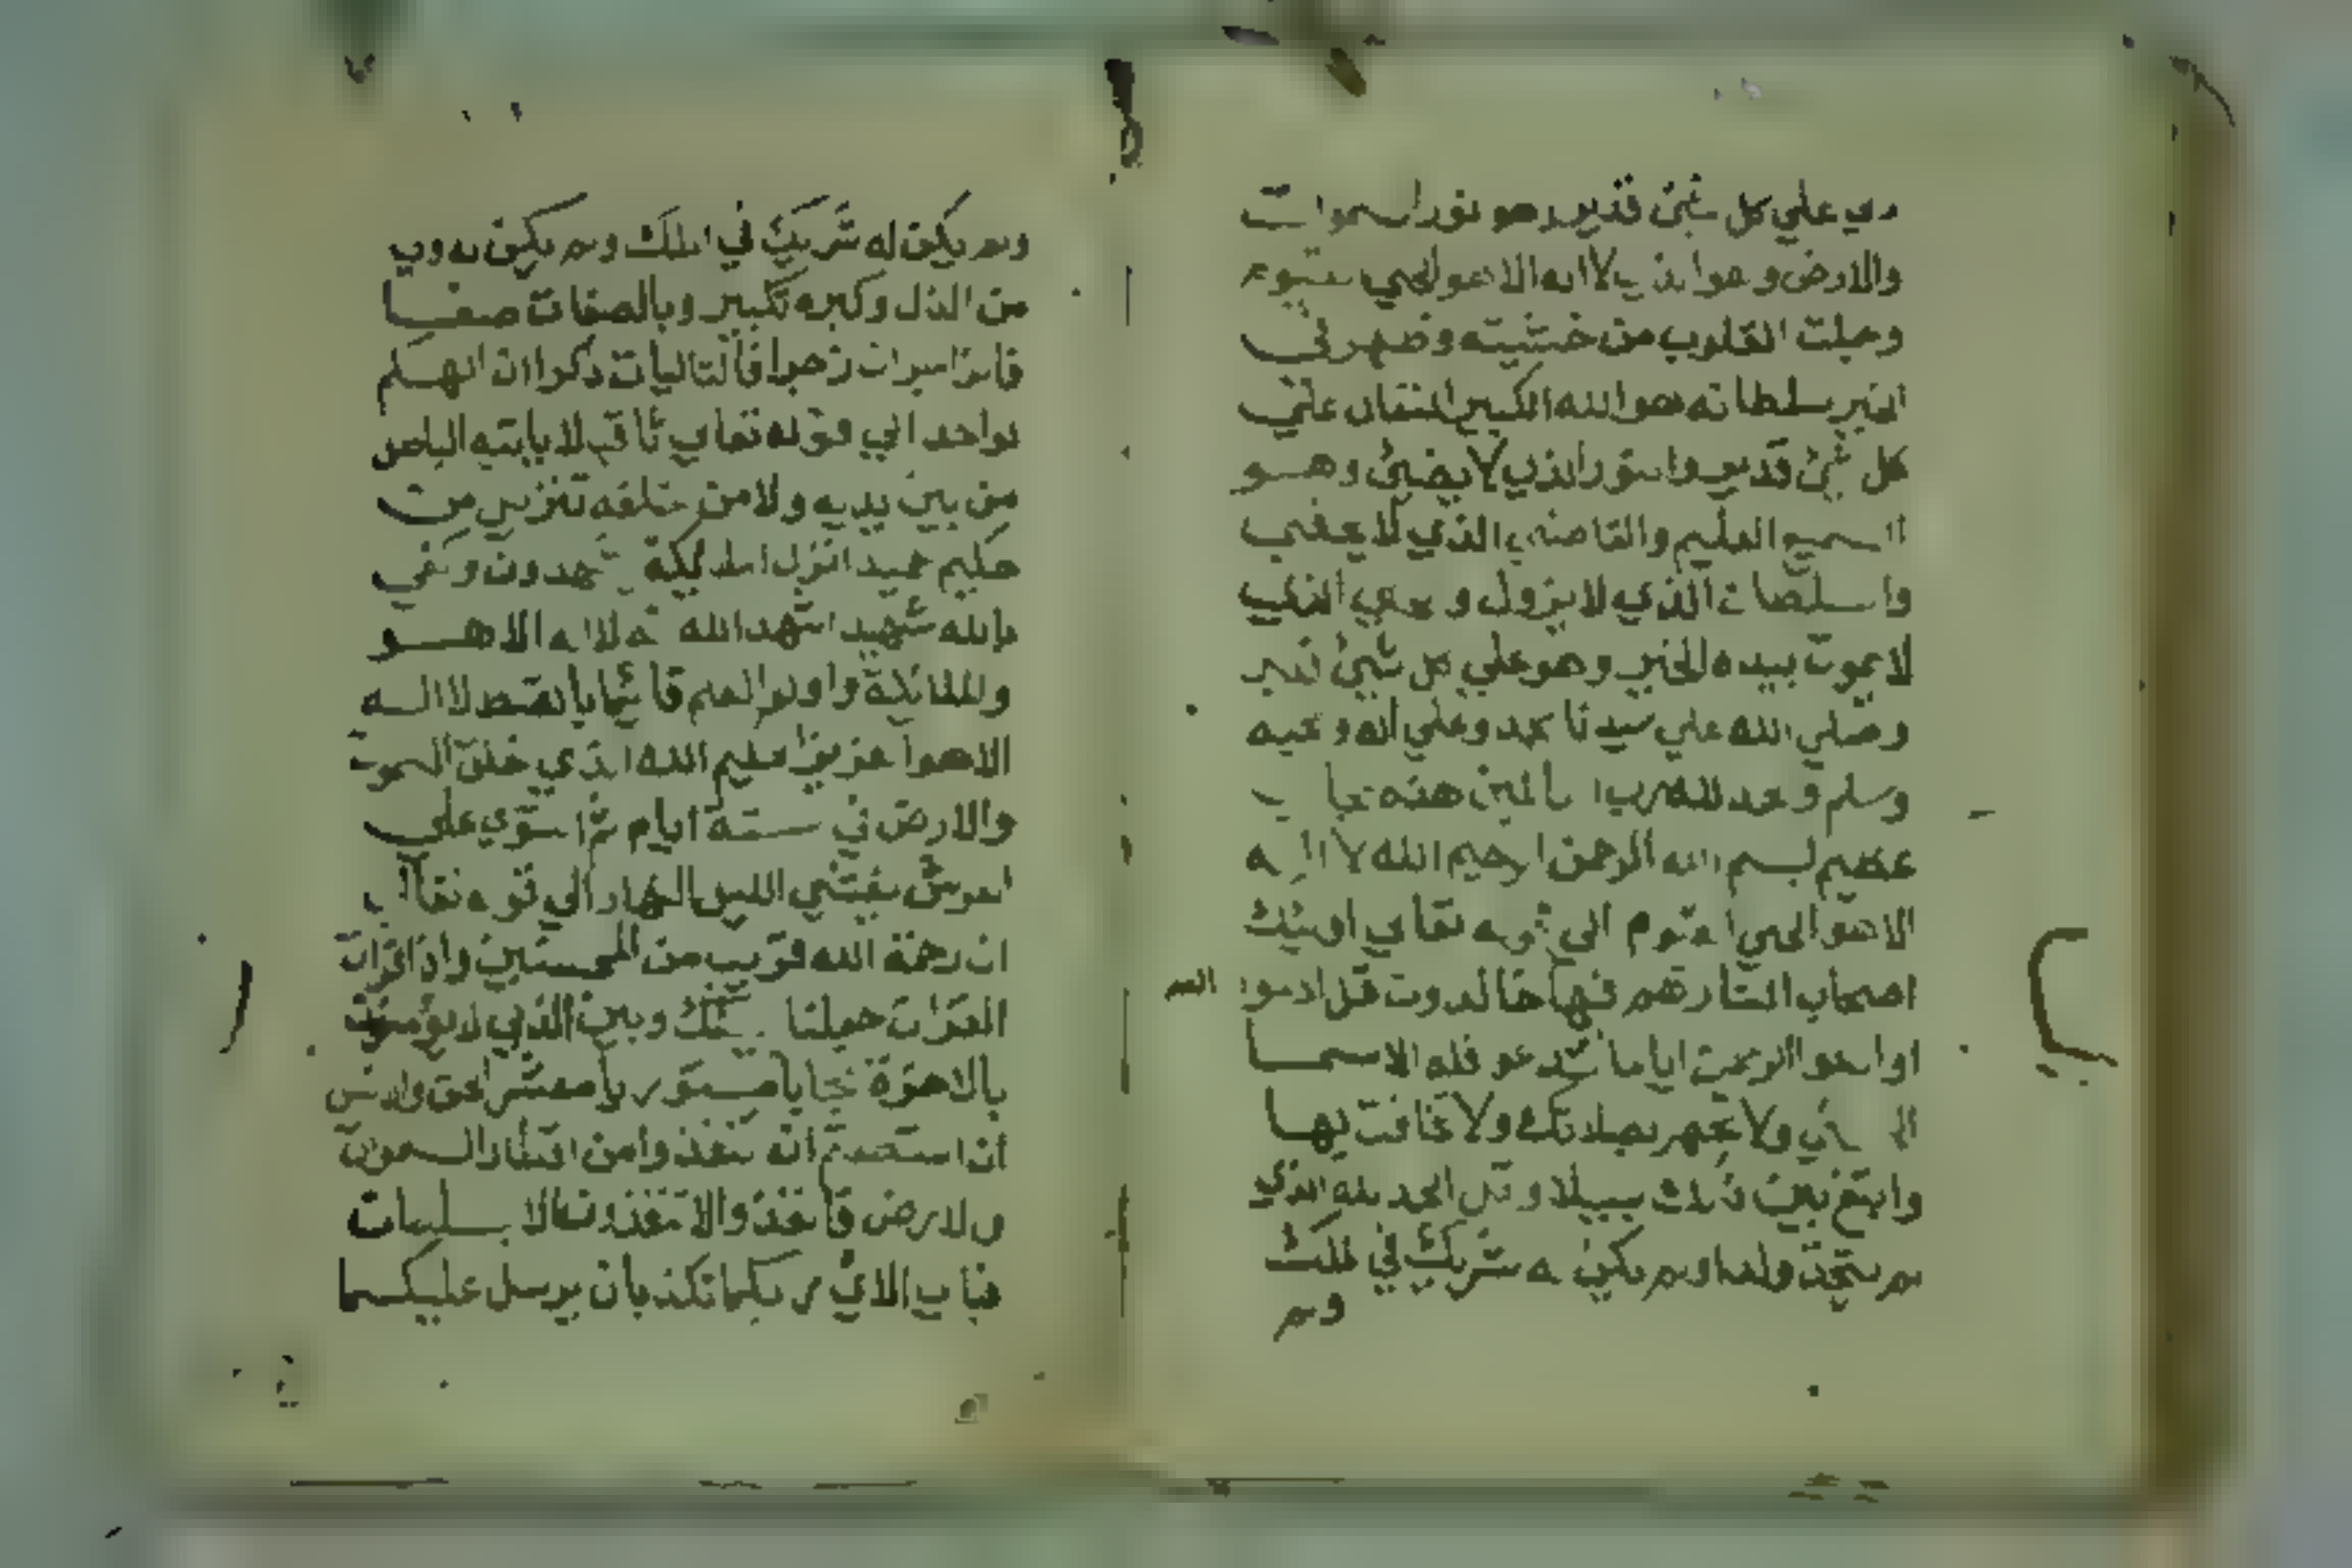 علي كل شئ قدير هو نور السموات
والارض وهو الذي لا اله الا هو الحي القيوم
وجلت القلوب من خشيته وظهر في
سلطانه هو الله الكبير المتعال علي
كل شئ قدير والنور الذي لا يضئ وهو
السميع العليم والقاضي الذي لا يعقب
والسلطان الذي لا يزول و الذي
لا يموت بيده الخير وهو علي كل شئ قدير
وصلي الله علي سيدنا محمد وعلي اله وصحبه
وسلم و الحمد لله رب العالمين هذه حجاب
عظيم بسم الله الرحمن الرحيم الله لا اله
الا هو الحي القيوم الي قوله تعالي اوليك
اصحاب النار هم فيها خالدون قل ادعو الله
او ادعو الرحمن اياما تدعو فله الاسما
الحسني ولا تجهر بصلاتك ولا تخافت بها
وابتغ بين ذلك سبيلا وقل الحمد لله الذي
لم يتخذ ولدا ولم يكن له شريك في الملك
ولم
ولم يكن له شريك في الملك ولم يكن له ولي
من الذل وكبره تكبير وبالصفات صفا
فالزاجرات زجرا فالتاليات ذكرا ان الهكم
لواحد الي قوله تعالي ثاقب لا ياتيه الباطل
من بين يديه ولا من خلفه تنزيل من
حكيم حميد انزل الملائكة يشهدون وكفي
بالله شهيد اشهد الله انه لا اله الا هو
والملائكة واولو العلم قائما بالقسط لا اله
الا هو العزيز الحكيم الله الذي خلق السموت
والارض في ستة ايام ثم استوي علي
العرش يغشي الليل النهار الي قوله تعالي
ان رحمة الله قريب من المحسنين واذا قرات
القران جعلنا بينك وبين الذي لا يؤمنون
بالاخرة حجابا مستور يا معشر الجن والانس
ان استطعتم ان تنفذوا من اقطار السموت
والارض فانفذوا لا تنفذون الا بسلطان
فباي الاي ربكما تكذبان يرسل عليكما